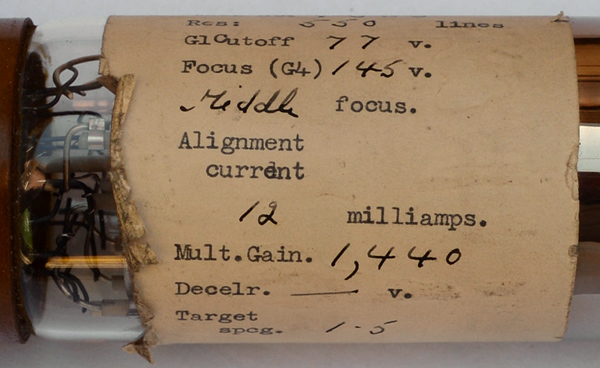 Res: 550 lines
G1Cutoff 77 v.
Focus (G4) 145 v.
Middle focus.
Alignment
current
12 milliamps.
Mult.Gain. 1,440
Decelr. — v.
Target
spcg. 1-5